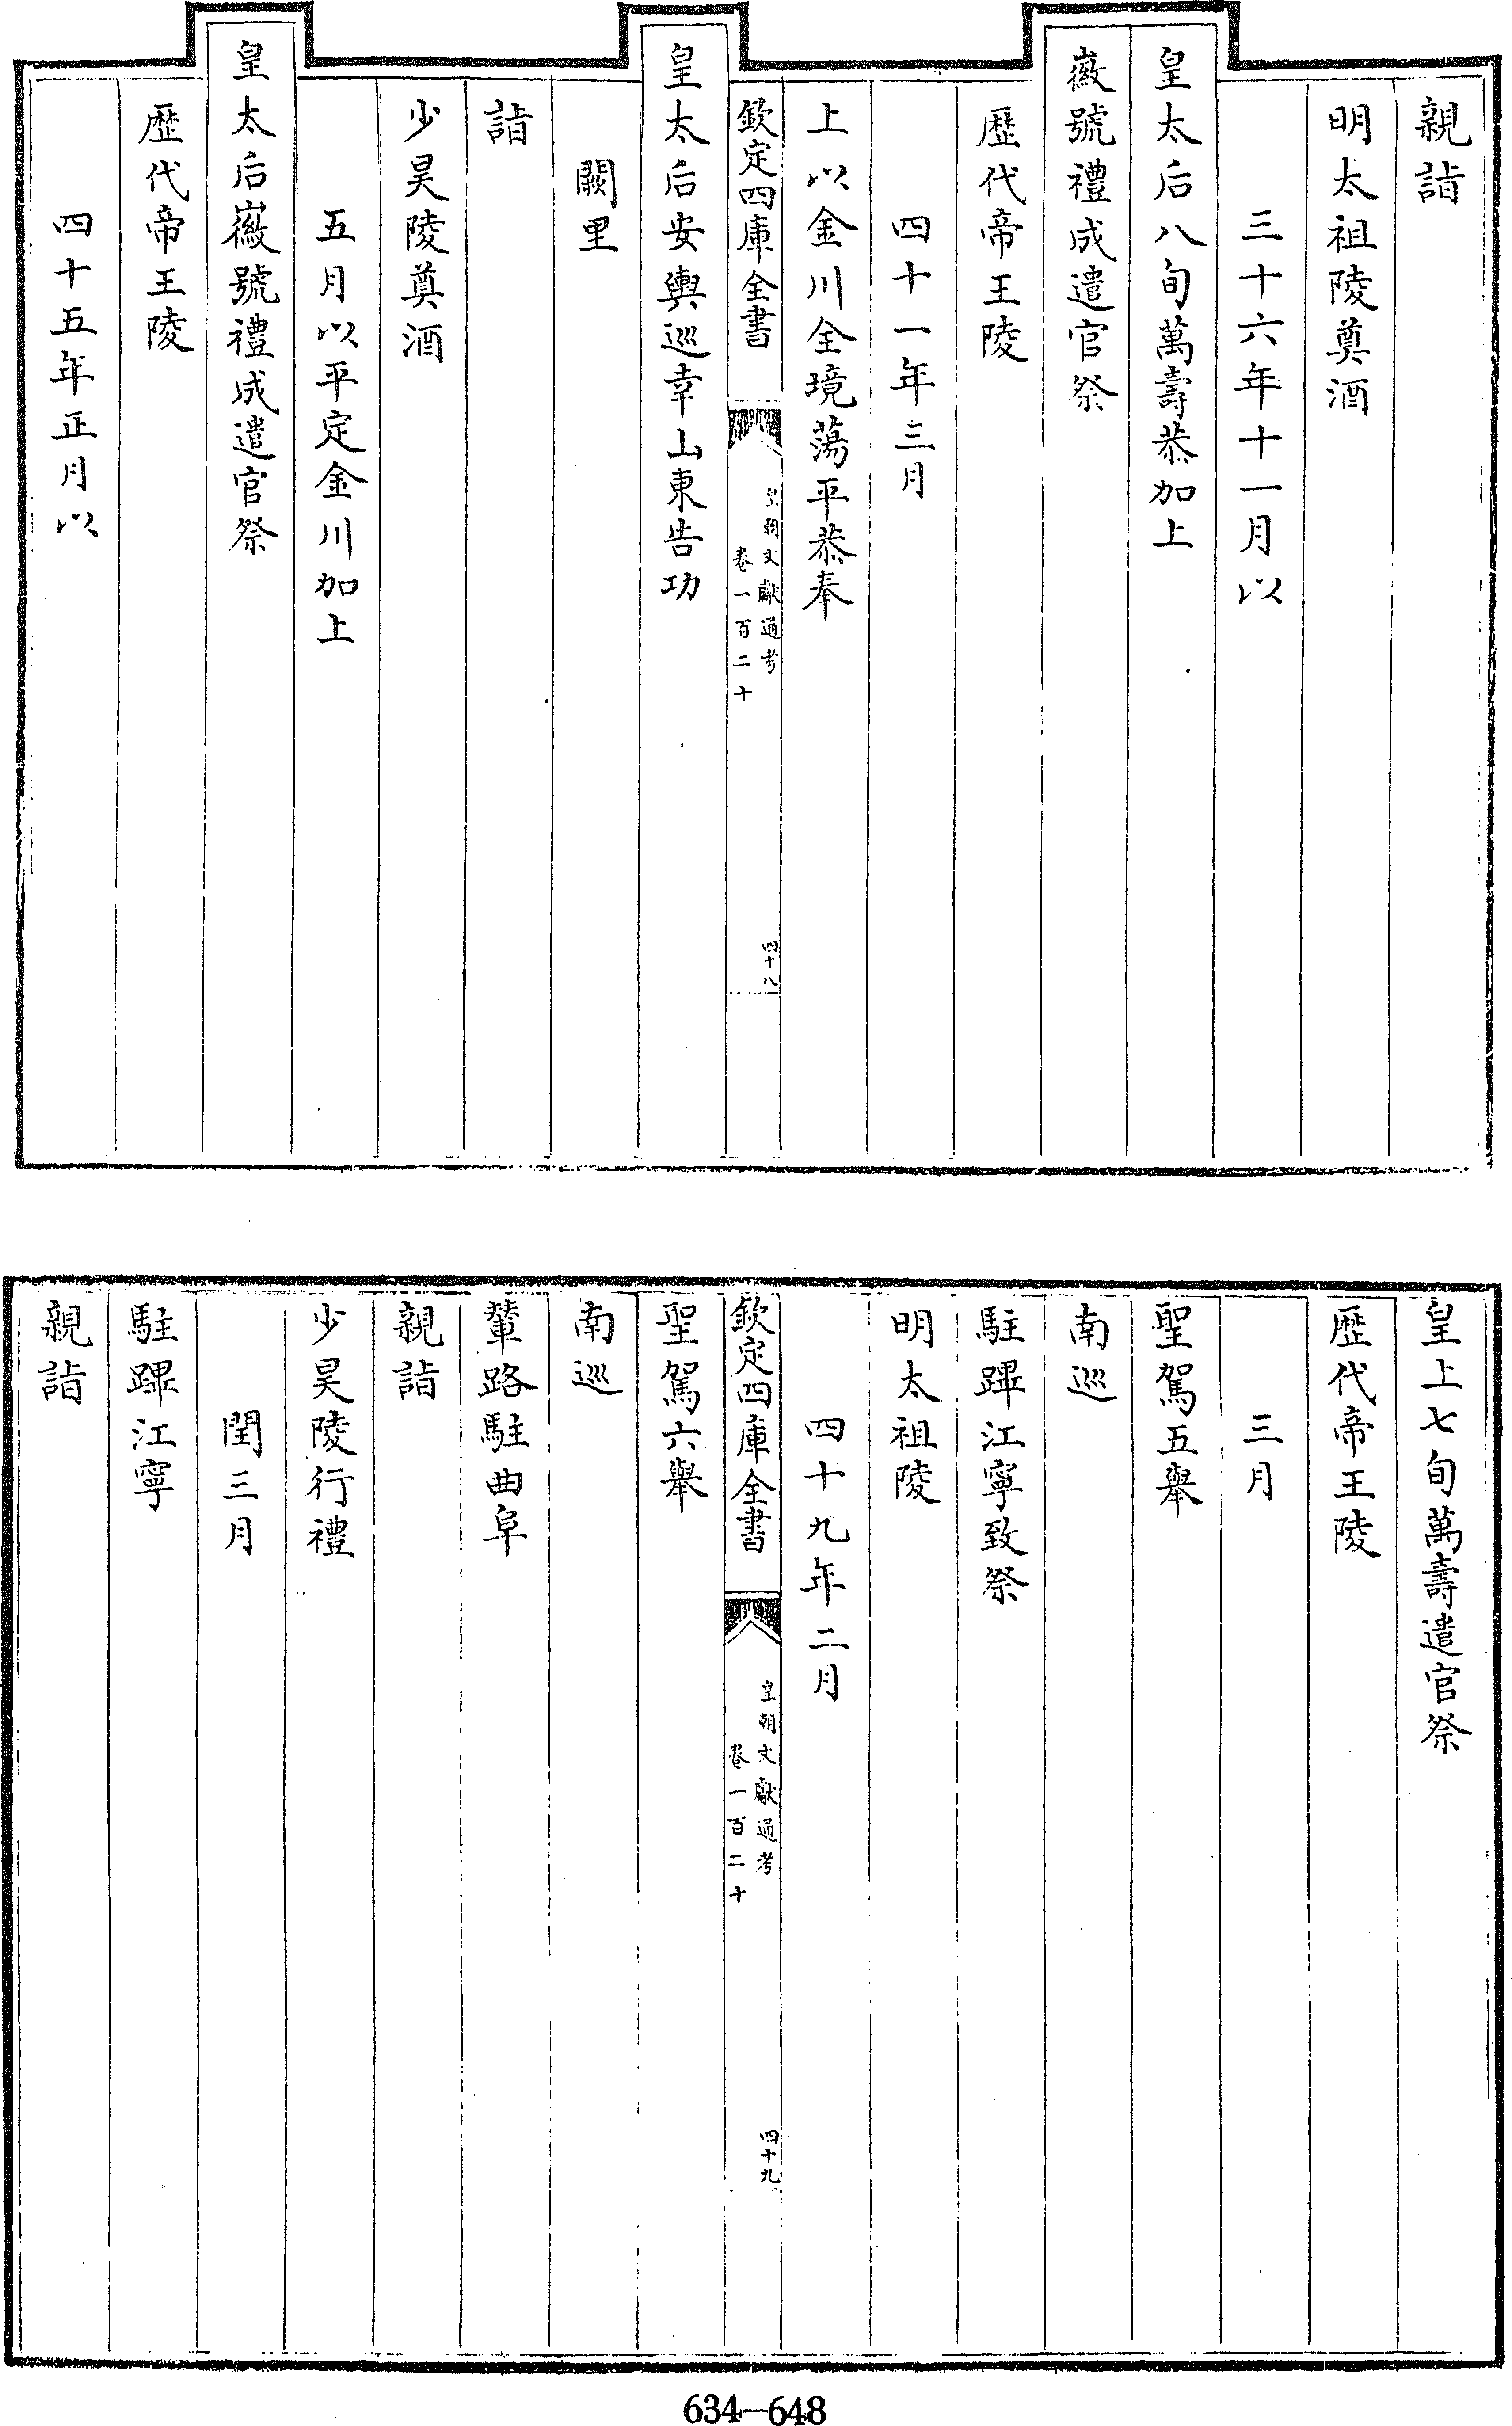 親詣
明太祖陵奠酒
三十六年十一月以
皇太后八旬萬壽恭加上
徽號禮成遣官祭
歷代帝王陵
四十一年三月
上以金川全境蕩平恭奉
欽定四庫全書
皇朝文獻通考
卷一百二十
四十八
皇太后安輿巡幸山東告功
闕里
詣
少昊陵奠酒
五月以平定金川加上
皇太后徽號禮成遣官祭
歷代帝王陵
四十五年正月以
皇上七旬萬壽遣官祭
歷代帝王陵
三月
聖駕五舉
南巡
駐蹕江寧致祭
明太祖陵
四十九年二月
欽定四庫全書
皇朝文獻通考
卷一百二十
四十九
聖駕六舉
南巡
輦路駐曲阜
親詣
少昊陵行禮
閏三月
駐蹕江寧
親詣
634-648